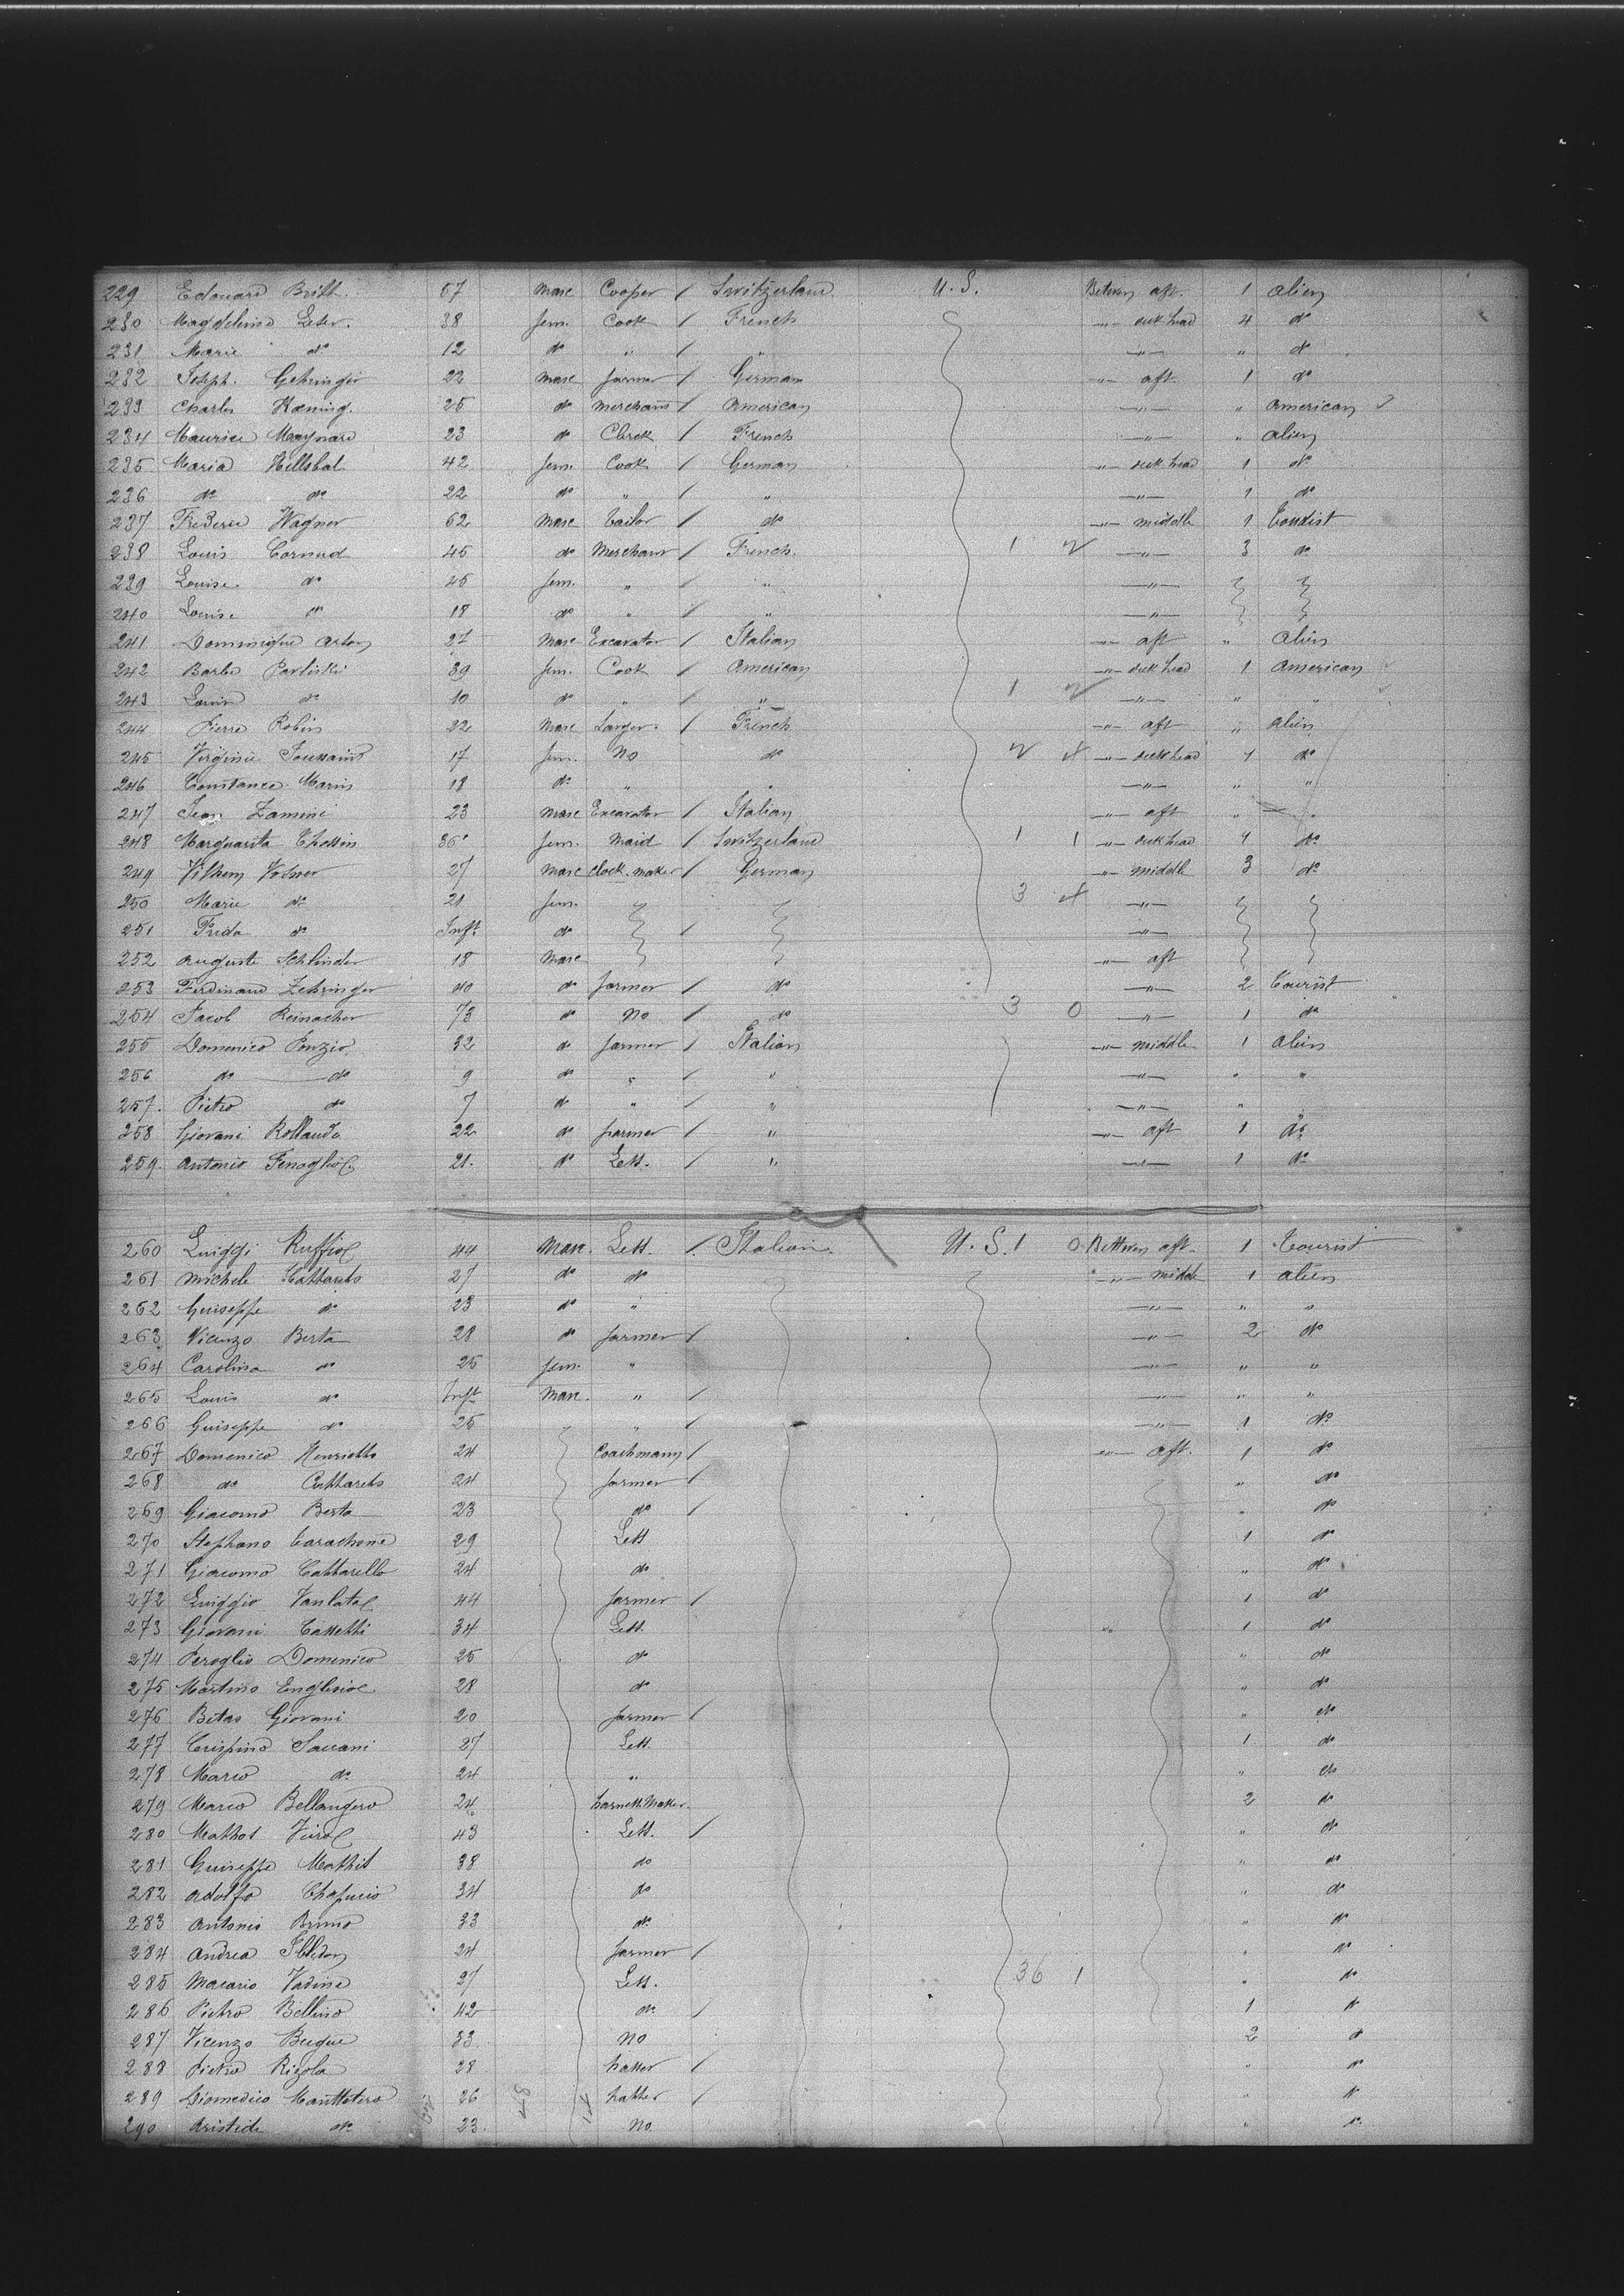 229 Edouard Britt. 57 Mase Cooper / Switzerland U.S. Between aft. 1 alien
230 Magdelina Leser. 38 fem. Cook / French -"- deck head 4 do
231 Marie do 12 do " / " -"- " do
232 Joseph. Gehringer 22 Mase farmer / German -"- aft 1 do
233 Charles Koening. 25 do Merchant / American -"- " American
234 Maurice Maynard 23 do Clerck / French -"- " alien
235 Maria Hillebal 42 fem. Cook / German -"- deck head 1 do
236 do do 22 do " / " -"- 1 do
237 Frederic Wagner 62 Mase tailor / do -"- middle 1 tourist
238 Louis Cornud 45 do Merchant / French. 1 2 -"- 3 do
239 Louise do 45 fem. " / " -"-
240 Louise do 18 do " / " -"-
241 Dominique Arton 27 Mase Excavator / Italian -"- aft " alien
242 Barbe Parliski 39 fem. Cook / American -"- deck head 1 American
243 Louise do 10 do " / " 1 2 -"- " "
244 Pierre Robin 22 Mase / French -"- aft " alien
245 Virginie Toussaint 17 fem. No do 2 4 -"- deck head 4 do
246 Constance Marin 18 do " " -"- " "
247 Jean Zamini 23 Mase Excavator / Italian -"- aft "
248 Marguarita Chessin 36 fem. Maid / Switzerland 1 1 -"- deck head 4 do
249 Vilhem Vosner 27 Mase clock.maker / German -"- middle 3 do
250 Marie do 21 fem. 3 4 -"-
251 Frida do Inft do / -"-
252 Auguste Schlinder 18 Mase -"- aft
253 Ferdinand Zehringer 40 do farmer / do -"- 2 tourist
254 Jacob Reinacher 73 do No / do 3 0 -"- 1 do
255 Domenico Ponzio 32 do farmer / Italian -"- middle 1 alien
256 do do 9 do " / " -"- " "
257. Pietro do 7 do " / " -"- " "
258 Giovani Rollando 22 do farmer / " -"- aft 1 do
259. Antonio Fenoglio 21. do Lett. / " -"- 1 do
260 Luiggi Ruffio 44 Mase. Lett. / Italian. U.S. 1 0 Between aft. 1 tourist
261 Michele Cattareto 27 do do -"- middle 1 alien
262 Guiseppe do 23 do " -"- " "
263 Vicenzo Berta 28 do farmer / -"- 2 do
264 Carolina do 25 fem. " -"- " "
265 Louis do Inft Mase. " / -"- " "
266 Guiseppe do 25 " / -"- 1 do
267 Domenico Henrietto 24 Coachmann / -"- aft. 1 do
268 do Cattareto 24 farmer / " do
269 Giacomo Berta 23 do / " do
270 Stephano Carachone 29 Lett 1 do
271 Giacomo Cattarello 24 do " do
272 Luiggio Vanlata 44 farmer / 1 do
273 Giovani Cassetti 34 Lett. 1 do
274 Peroglio Domenico 25 do " do
275 Martino Englesio 28 do " do
276 Betas Giovani 20 farmer / " do
277 Crispino Saccani 27 Lett. 1 do
278 Marco do 24 " " do
279 Marco Bellangero 24 harness Maker. 2 do
280 Mathot 43 Lett. / " do
281 Guiseppe Mathit 38 do " do
282 Adolfo Chapucio 34 do " do
283 Antonio Bruno 33 do " do
284 Andrea 24 farmer / " do
285 Macario Vadina 27 Lett. 36 1 " do
286 Pietro Bellino 42 do / 1 do
287 Vicenzo Beique 33 No 2 do
288 Pietro Rizola 28 hatter / " do
289 Diomedico Manttetero 26 hatter / " do
290 Aristide do 23. No. " do